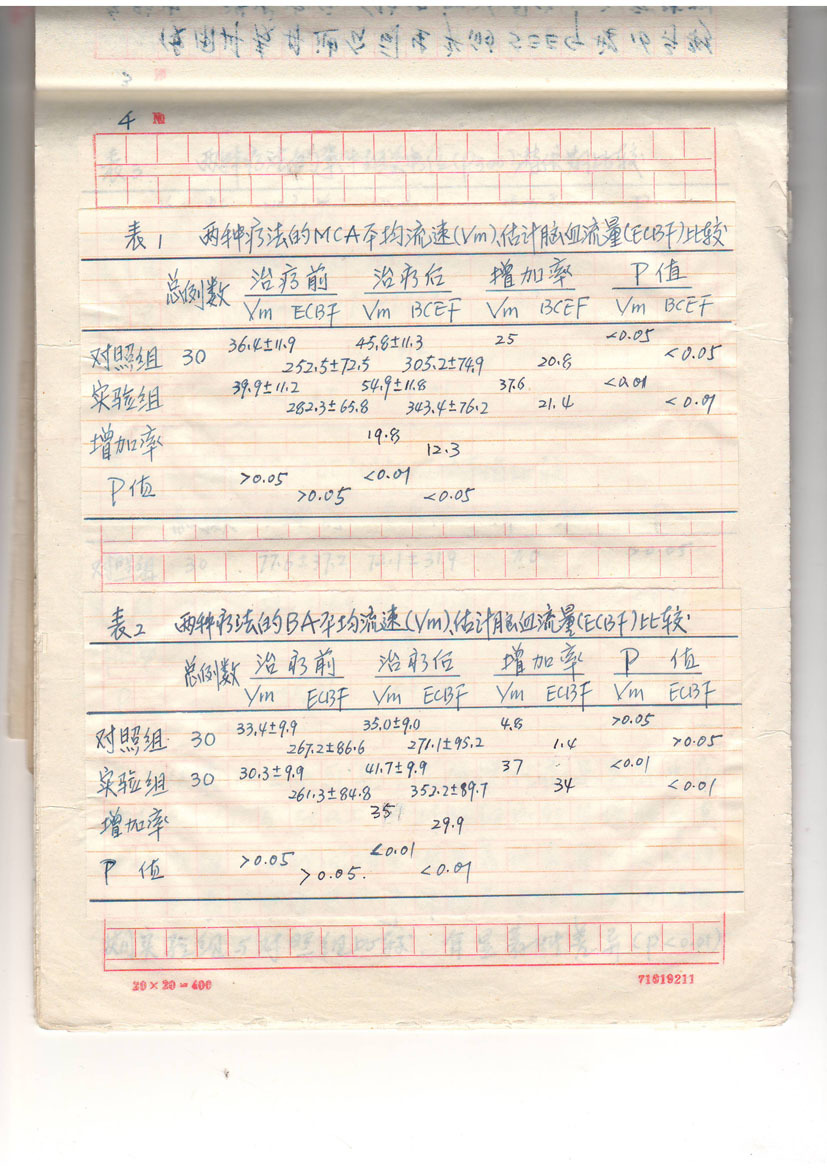 4 №
表1 两种疗法的MCA平均流速(Vm)、估计脑血流量(ECBF)比较
总例数 治疗前 治疗后 增加率 P值
Vm ECBF Vm BCEF Vm BCEF Vm BCEF
对照组 30 36.4±11.9 252.5±72.5 45.8±11.3 305.2±74.9 25 20.8 <0.05 <0.05
实验组 39.9±11.2 282.3±65.8 54.9±11.8 343.4±76.2 37.6 21.4 <0.01 <0.01
增加率 19.8 12.3
P值 >0.05 >0.05 <0.01 <0.05
对照组 30
表2 两种疗法的BA平均流速(Vm)、估计脑血流量(ECBF)比较
总例数 治疗前 治疗后 增加率 P值
Vm ECBF Vm ECBF Vm ECBF Vm ECBF
对照组 30 33.4±9.9 267.2±86.6 35.0±9.0 271.1±95.2 4.8 1.4 >0.05 >0.05
实验组 30 30.3±9.9 261.3±84.8 41.7±9.9 352.2±89.7 37 34 <0.01 <0.01
增加率 35 29.9
P值 >0.05 >0.05. <0.01 <0.01
实验组与对照组比较,有显著性差异(P<0.01)
20×20=400 71619211